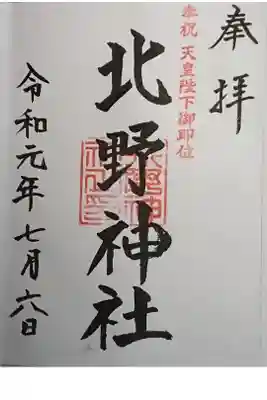 奉拝
奉祝 天皇陛下御即位
北野神社
令和元年七月六日